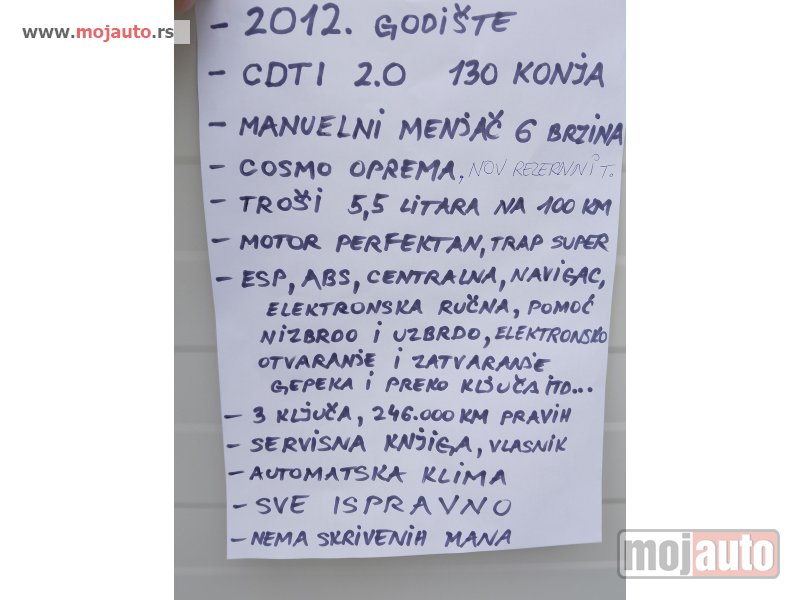 www.mojauto.rs
- 2012. GODIŠTE
- CDTI 2.0 130 KONJA
- MANUELNI MENJAČ 6 BRZINA
- COSMO OPREMA, NOV REZERVNI T.
- TROŠI 5,5 LITARA NA 100 KM
- MOTOR PERFEKTAN, TRAP SUPER
- ESP, ABS, CENTRALNA, NAVIGAC,
ELEKTRONSKA RUČNA, POMOĆ
NIZBRDO I UZBRDO, ELEKTRONSKO
OTVARANJE I ZATVARANJE
GEPEKA I PREKO KLJUČA ITD...
- 3 KLJUČA, 246.000 KM PRAVIH
- SERVISNA KNJIGA, VLASNIK
- AUTOMATSKA KLIMA
- SVE ISPRAVNO
- NEMA SKRIVENIH MANA
mojauto